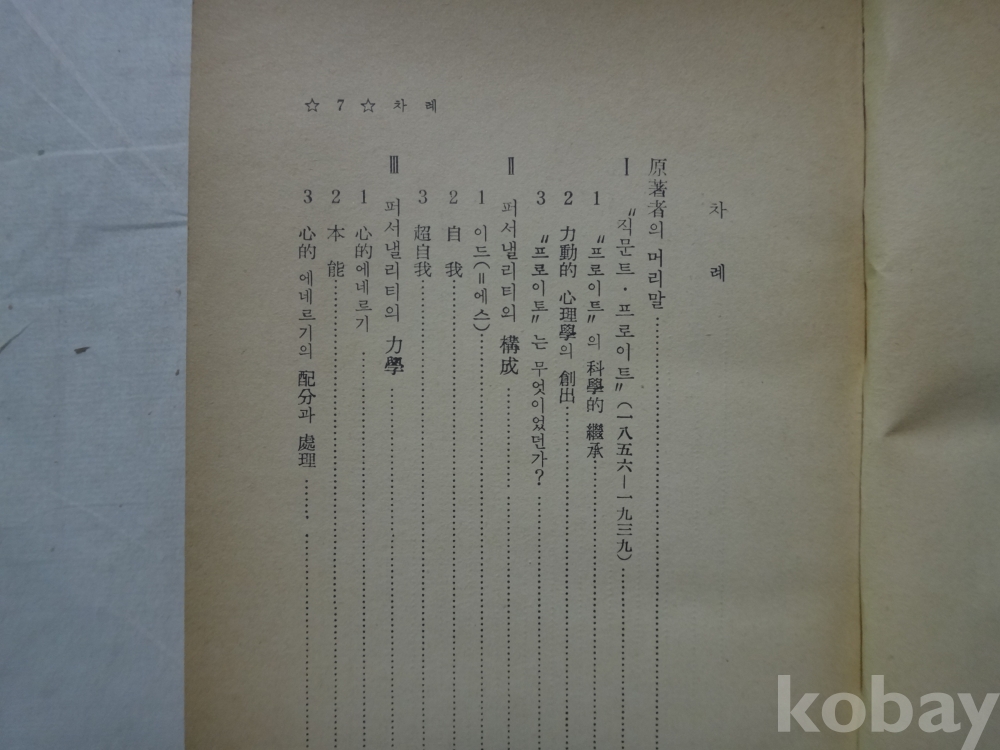 차례
原著者의 머리말
Ⅰ 〝직문트·프로이트〞(一八五六—一九三九)
1 〝프로이트〞의 科學的 繼承
2 力動的 心理學의 創出
3 〝프로이트〞는 무엇이었던가?
Ⅱ 퍼서낼리티의 構成
1 이드(=에스)
2 自我
3 超自我
Ⅲ 퍼서낼리티의 力學
1 心的에네르기
2 本能
3 心的 에네르기의 配分과 處理
☆ 7 ☆ 차례
kobay